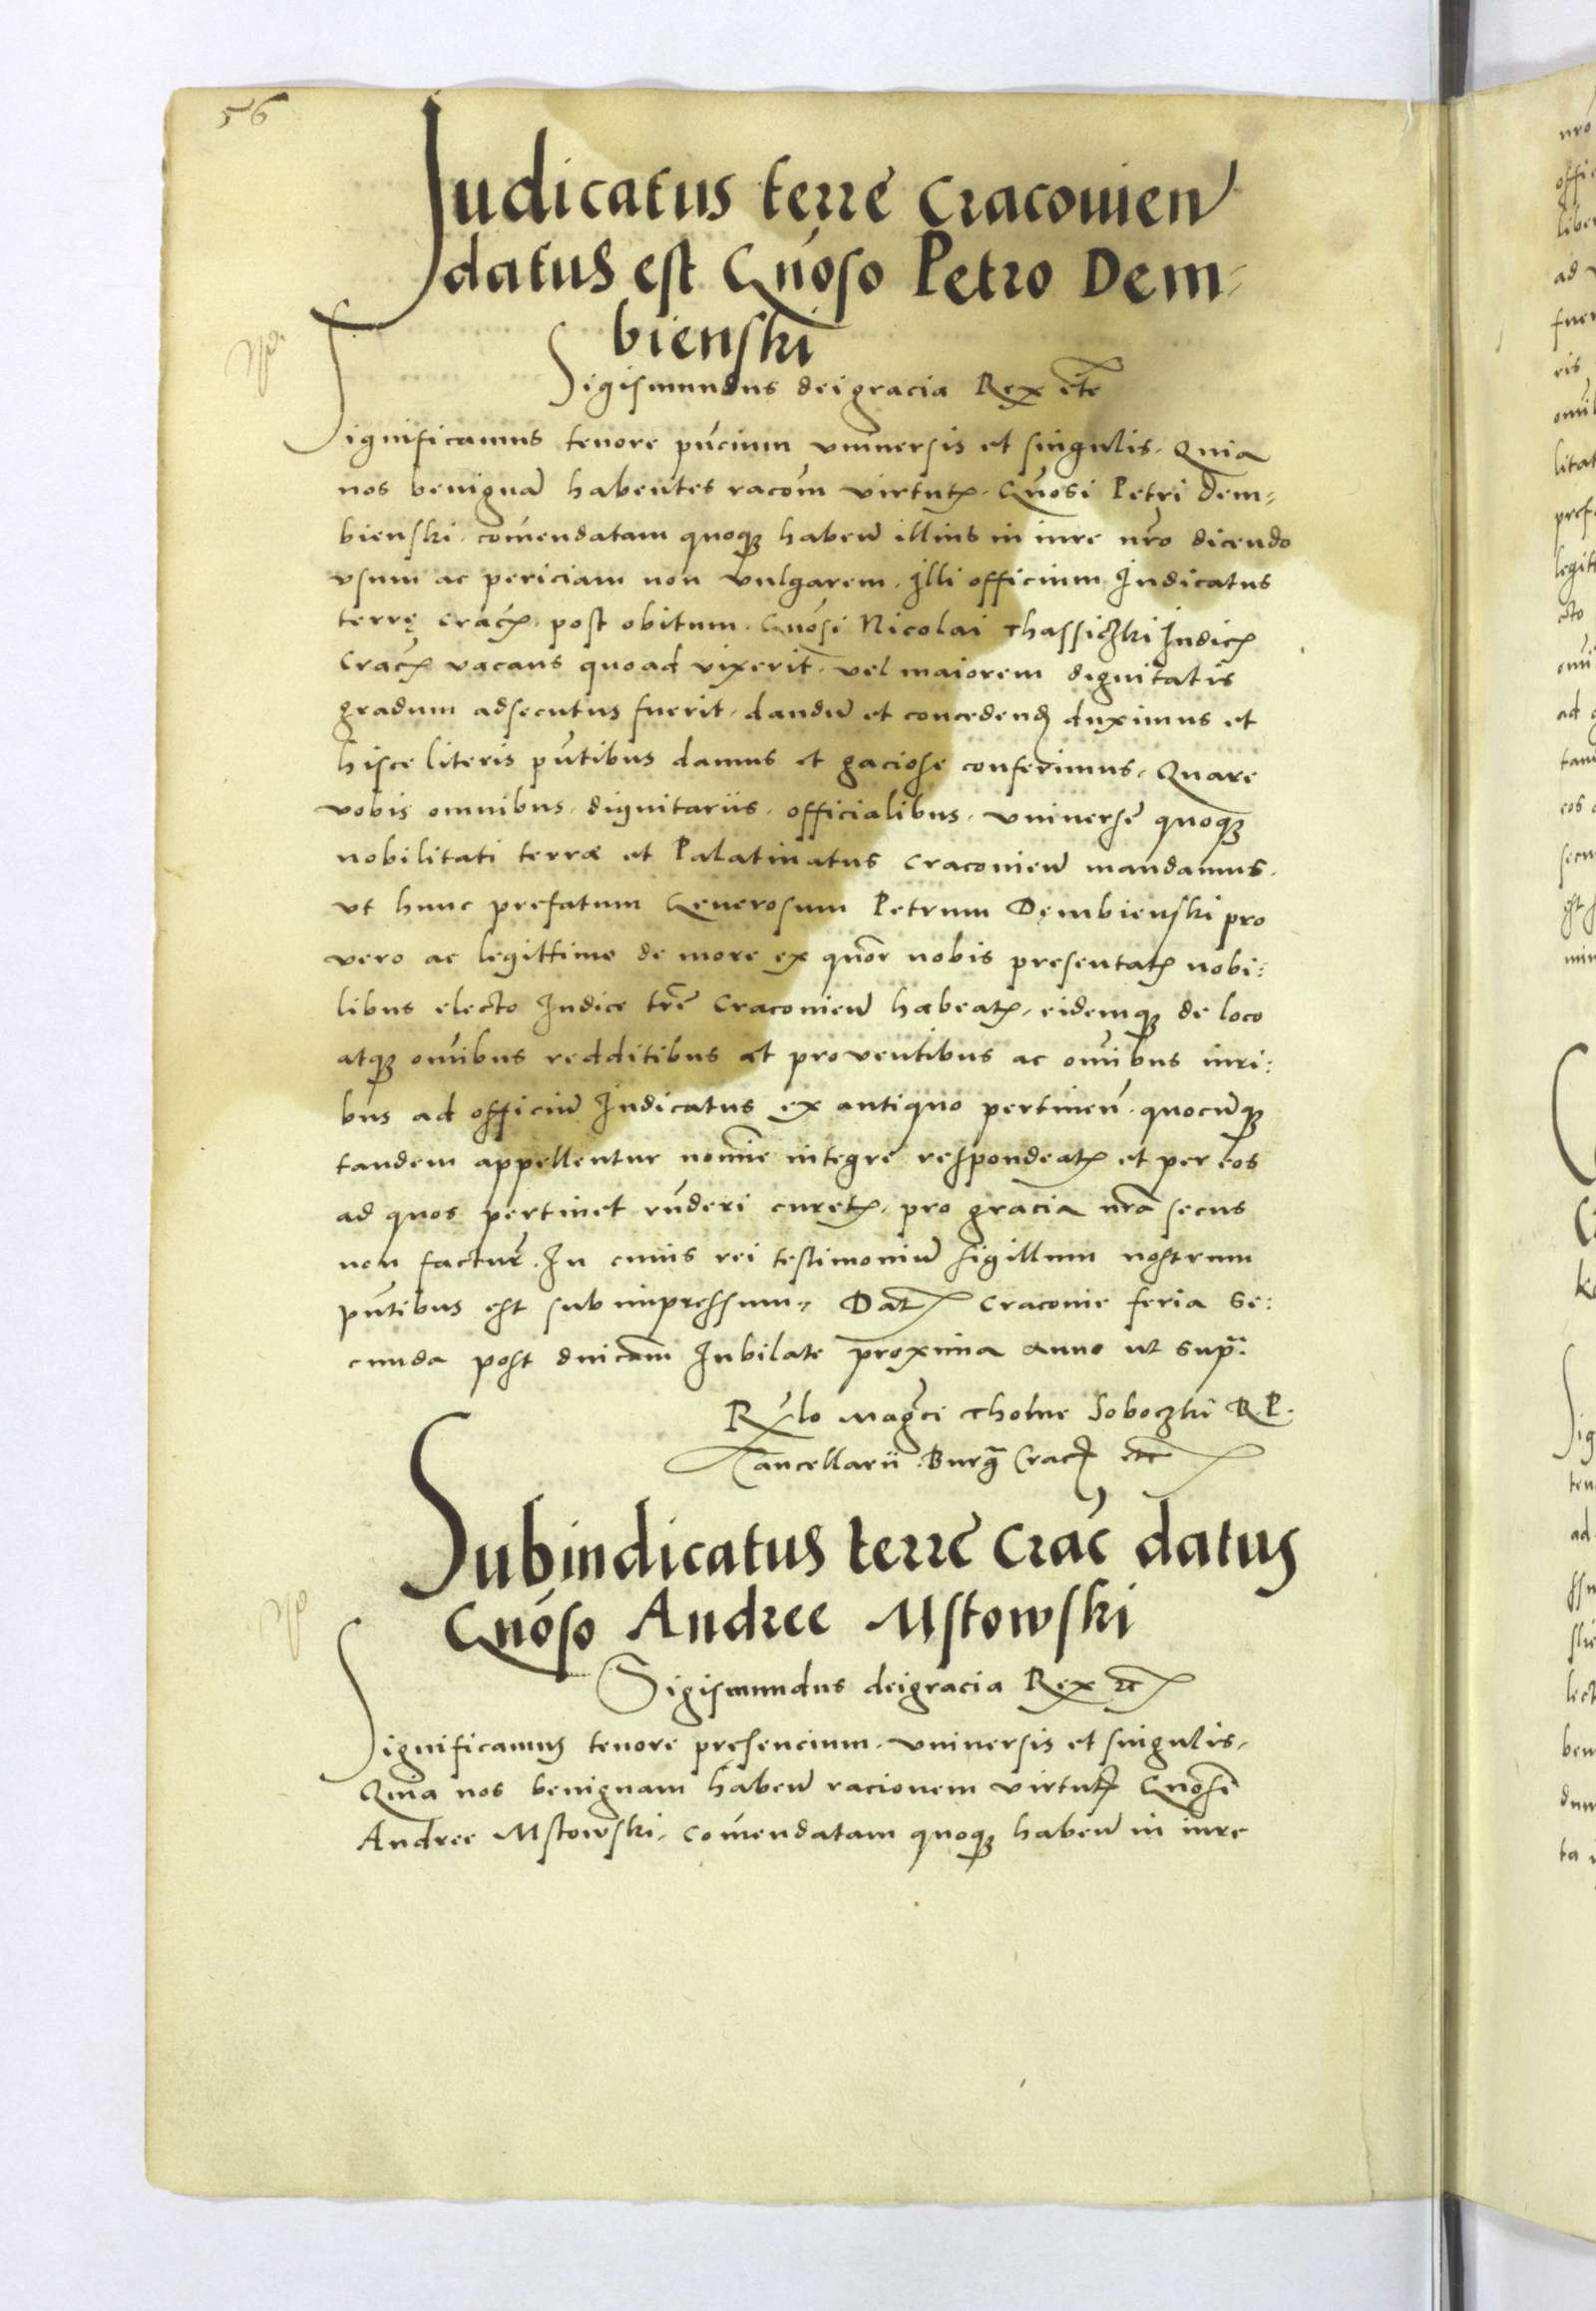 56
Judicatus terre Cracouien
datus est Gnoso Petro Dem-
bienski
Sigismundus dei gracia Rex etc
Significamus tenore pncium vniuersis et singulis. Quia
nos benignam habentes racom virtutz. Gnosi Petri Dem-
bienski. comendatam quoqz haben illius in iure nro dicendo
vsum ac periciam non vulgarem. Illi officium Iudicatus
terrę cracz. post obitum. Gnosi Nicolai Thassiczki Iudicz
Cracz vacans quoad vixerit. vel maiorem dignitatis
gradum adsecutus fuerit. dandu et concedend duximus et
hisce literis pntibus damus et gaciose conferimus. Quare
vobis omnibus. dignitariis. officialibus. vniuerse quoqz
nobilitati terræ et Palatinatus Cracouien mandamus.
vt hunc prefatum Generosum Petrum Dembienski pro
vero ac legittimo de more ex quor nobis presentatz nobi:
libus electo Iudice tre Cracouien habeatz. eidemqz de loco
atqz omibus redditibus et prouentibus ac omibus iuri:
bus ad officiu Iudicatus ex antiquo pertinen. quocumqz
tandem appellentur nomine integre respondeatz et per eos
ad quos pertinet rnderi curetz. pro gracia nra secus
non factur. In cuius rei testimoniu sigillum nostrum
pntibus est subimpressum. Datz Cracouie feria Se:
cunda post dnicam Iubilate proxima anno ut supra.
Rlo Magci Thome Soboczki R. P.
Cancellarii. Burg Cracz etc
Subiudicatus terre Crac datus
Gnoso Andree Mstowski
Sigismundus dei gracia Rex etc
Significamus tenore presencium. vniuersis et singulis.
Quia nos benignam haben racionem virtutz Gnosi
Andree Mstowski. comendatam quoqz haben in iure